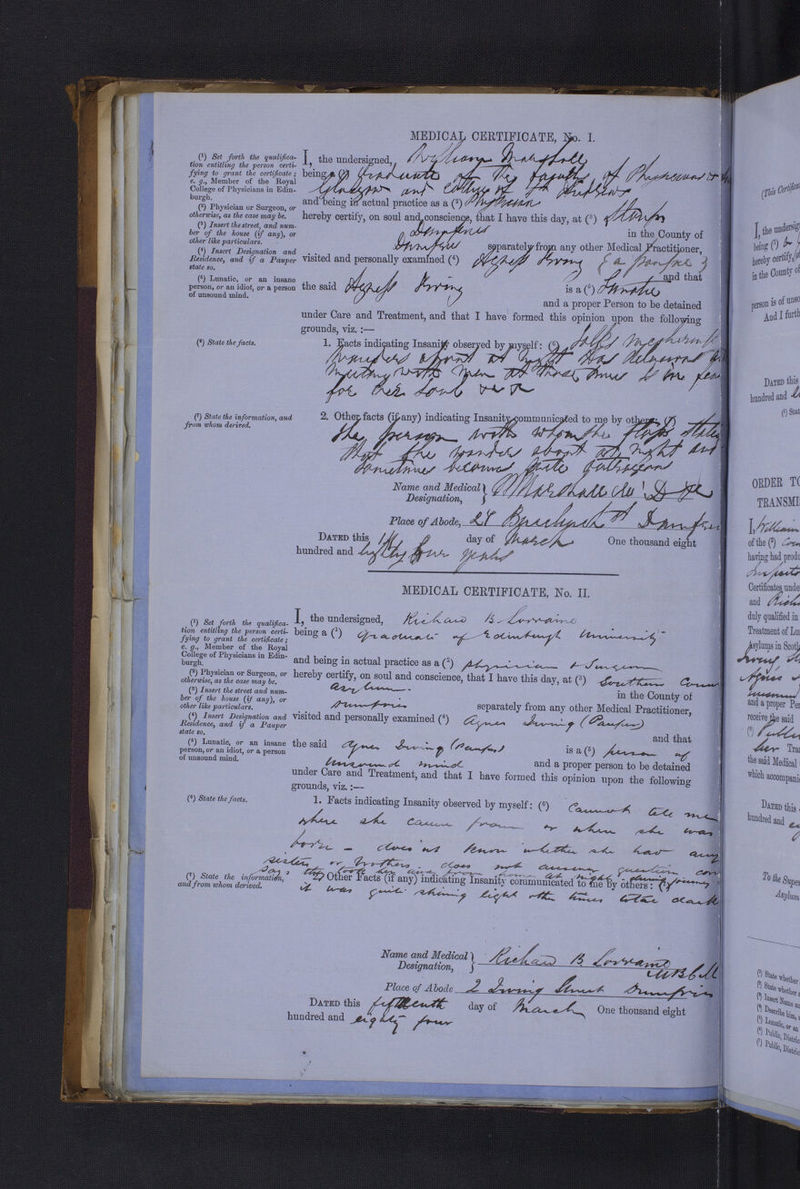 MEDICAL CERTIFICATE, No. I.
(¹) Set forth the qualifica-
tion entitling the person certi-
fying to grant the certificate;
e. g., Member of the Royal
College of Physicians in Edin-
burgh.
(²) Physician or Surgeon, or
otherwise, as the case may be.
(³) Insert the street, and num-
ber of the house (if any), or
other like particulars.
(⁴) Insert Designation and
Residence, and if a Pauper
state so.
(⁵) Lunatic, or an insane
person, or an idiot, or a person
of unsound mind.
I, the undersigned, William Marshall
being a Graduate of the Faculty of Physicians
Glasgow and College of St Andrews
and being in actual practice as a (²) Physician
hereby certify, on soul and conscience, that I have this day, at (³)
Dumfries in the County of
Dumfries separately from any other Medical Practitioner,
visited and personally examined (⁴) Agness Irving { a Pauper }
and that
the said Agness Irving is a (⁵) Lunatic
and a proper Person to be detained
under Care and Treatment, and that I have formed this opinion upon the following
grounds, viz. :—
(⁶) State the facts.
1. Facts indicating Insanity observed by myself: (⁶)
wanders about at night Has delusions
meeting with men at those times
for her soul
(⁷) State the information, and
from whom derived.
2. Other facts (if any) indicating Insanity communicated to me by others: (⁷)
The person with whom she stops states
that she wanders about at night and
sometimes becomes quite
Name and Medical Designation, } W Marshall
Place of Abode, 24 Buccleuch St Dumfries
DATED this day of March One thousand eight
hundred and eighty four years
MEDICAL CERTIFICATE, No. II.
(¹) Set forth the qualifica-
tion entitling the person certi-
fying to grant the certificate;
e. g., Member of the Royal
College of Physicians in Edin-
burgh.
(²) Physician or Surgeon, or
otherwise, as the case may be.
(³) Insert the street and num-
ber of the house (if any), or
other like particulars.
(⁴) Insert Designation and
Residence, and if a Pauper
state so.
(⁵) Lunatic, or an insane
person, or an idiot, or a person
of unsound mind.
I, the undersigned, Richard B. Lorraine
being a (¹) Graduate of Edinburgh University
and being in actual practice as a (²) physician & Surgeon
hereby certify, on soul and conscience, that I have this day, at (³) Southern Coun
asylum. in the County of
Dumfries separately from any other Medical Practitioner,
visited and personally examined (⁴) Agnes Irving (Pauper)
and that
the said Agnes Irving (Pauper) is a (⁵) person of
unsound mind and a proper person to be detained
under Care and Treatment, and that I have formed this opinion upon the following
grounds, viz. :—
(⁶) State the facts.
1. Facts indicating Insanity observed by myself: (⁶) Cannot tell me
where she came from or when she was
born - does not know whether she had any
sisters or brothers. does not answer question
says they took her away from home at night during journey
(⁷) State the information,
and from whom derived.
2. Other Facts (if any) indicating Insanity communicated to me by others: (⁷)
it was quite shining light other times total dark
Name and Medical Designation, } Richard B Lorraine MB CM
Place of Abode 2 Irving Street Dumfries
DATED this fifteenth day of March One thousand eight
hundred and eighty four
(This Certific
I, the undersig
being (¹)
hereby certify,
in the County of
person is of unso
And I furth
DATED this
hundred and
(¹) Stat
ORDER TO
TRANSMI
I, William
of the (²)
having had produ
Certificates unde
and Rich
duly qualified in
Treatment of Lu
Asylums in Scotl
Irving
Agnes
unsound
and a proper Per
receive the said
(⁷) Public
her Trea
the said Medical
which accompani
DATED this
hundred and
To the Supe
Asylum
(¹) State whether
(²) State whether
(³) Insert Name an
(⁴) Describe him,
(⁵) Lunatic, or an
(⁶) Public, Distric
(⁷) Public, Distric